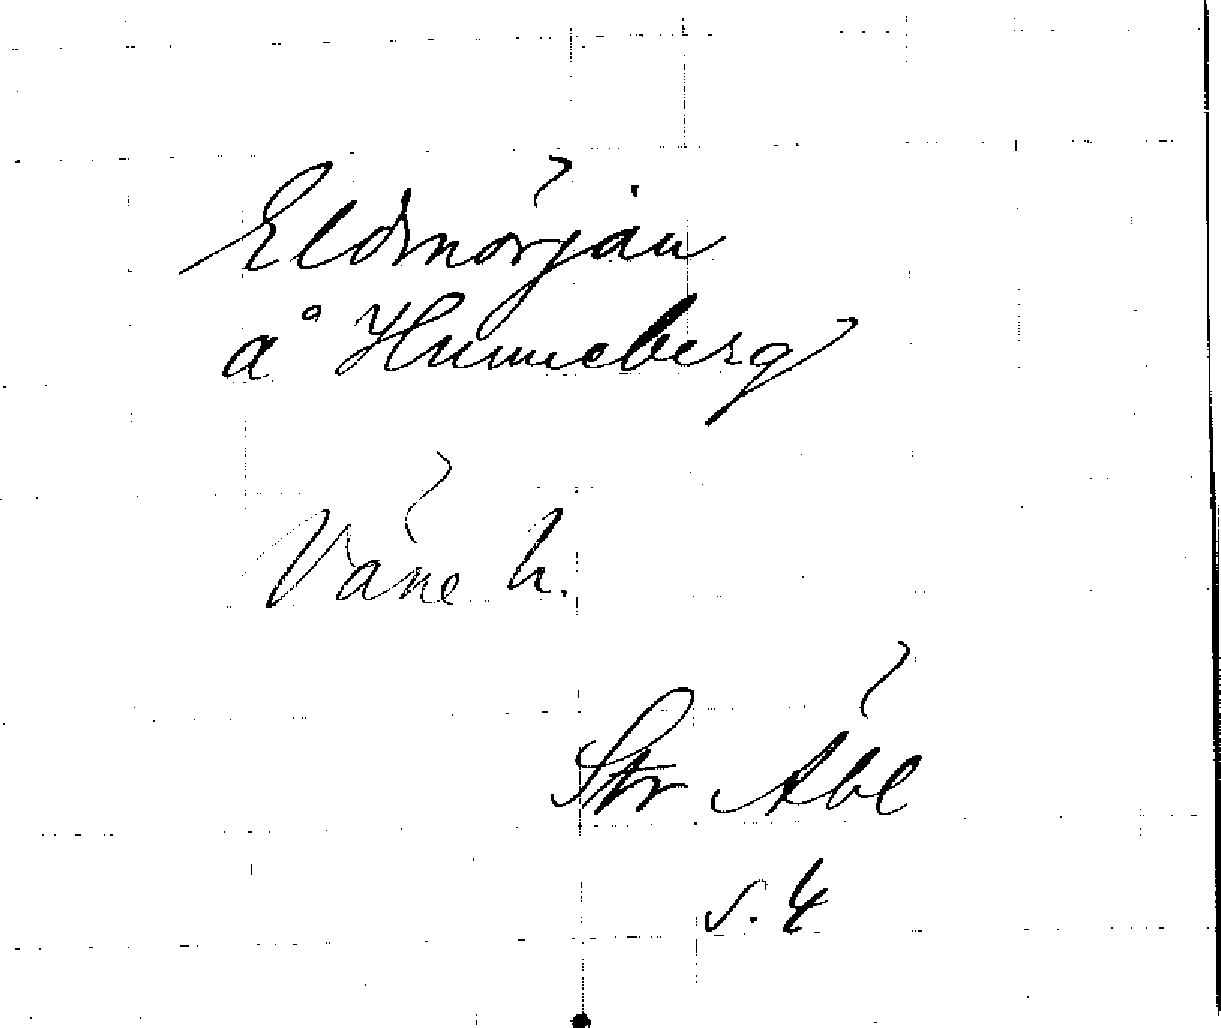 Eldmörjan
å Hunneberg
Väne h.
Str Äbl
s. 4